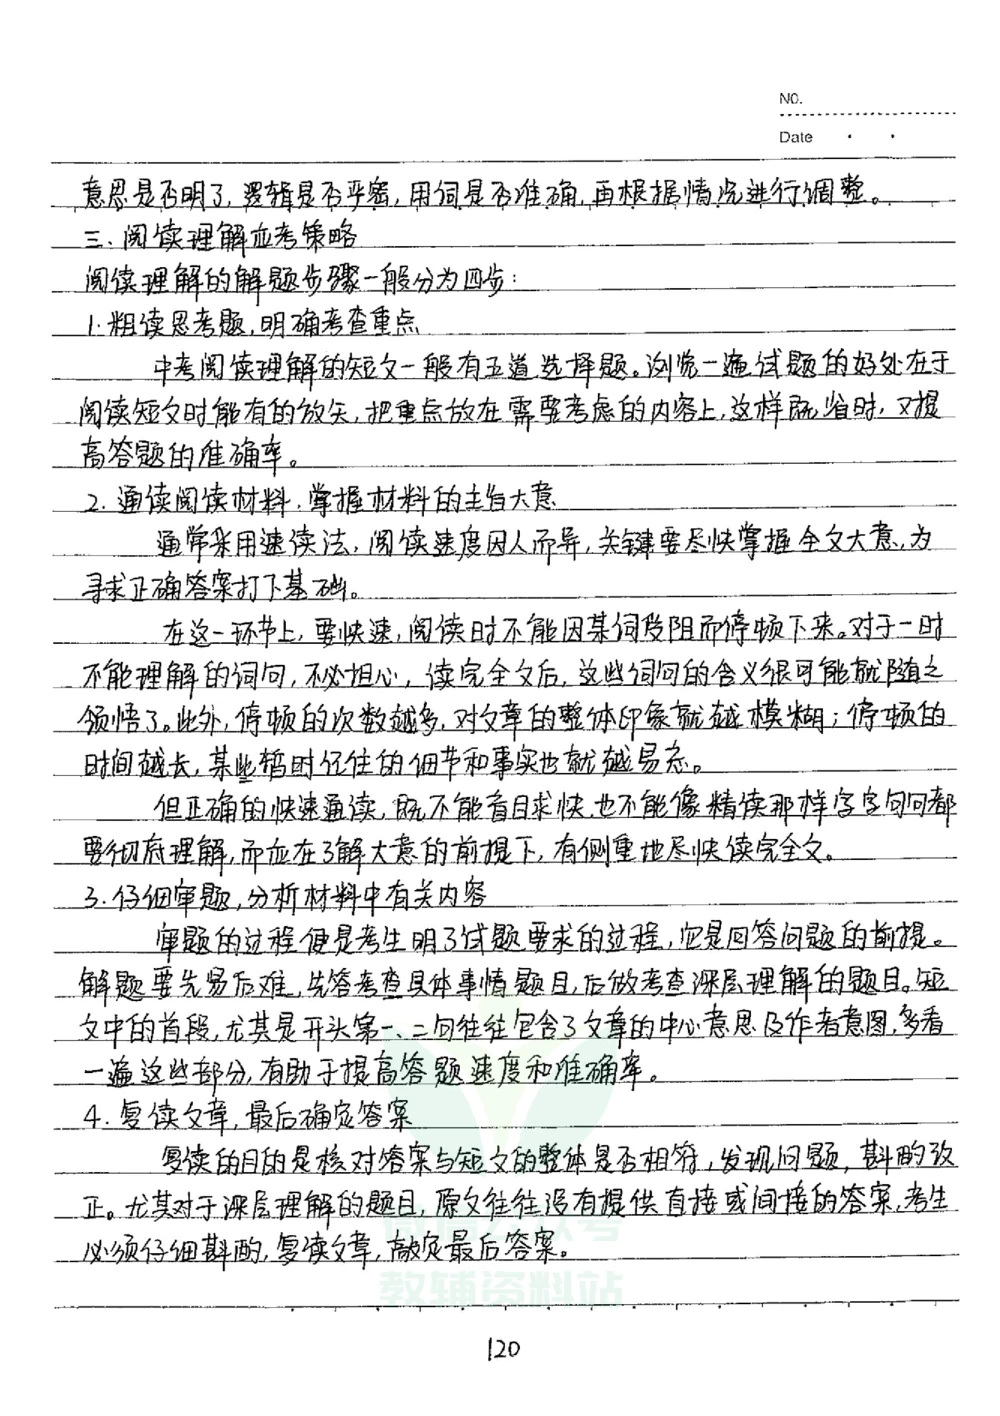 NO.
Date
意思是否明了,逻辑是否严密,用词是否准确,再根据情况进行调整。
三.阅读理解应考策略
阅读理解的解题步骤一般分为四步:
1.粗读思考题,明确考查重点
中考阅读理解的短文一般有五道选择题。浏览一遍试题的好处在于
阅读短文时能有的放矢,把重点放在需要考虑的内容上,这样既省时,又提
高答题的准确率。
2.通读阅读材料,掌握材料的主旨大意
通常采用速读法,阅读速度因人而异,关键要尽快掌握全文大意,为
寻求正确答案打下基础。
在这一环节上,要快速,阅读时不能因某词段阻而停顿下来。对于一时
不能理解的词句,不必担心,读完全文后,这些词句的含义很可能就随之
领悟了。此外,停顿的次数越多,对文章的整体印象就越模糊;停顿的
时间越长,某些暂时记住的细节和事实也就越易忘。
但正确的快速通读,既不能盲目求快,也不能像精读那样字字句句都
要彻底理解,而应在了解大意的前提下,有侧重地尽快读完全文。
3.仔细审题,分析材料中有关内容
审题的过程便是考生明了试题要求的过程,它是回答问题的前提。
解题要先易后难,先答考查具体事情题目,后做考查深层理解的题目。短
文中的首段,尤其是开头第一、二句往往包含了文章的中心意思及作者意图,多看
一遍这些部分,有助于提高答题速度和准确率。
4.复读文章,最后确定答案
复读的目的是核对答案与短文的整体是否相符,发现问题,斟酌改
正。尤其对于深层理解的题目,原文往往没有提供直接或间接的答案,考生
必须仔细斟酌,复读文章,敲定最后答案。
教辅资料站
120